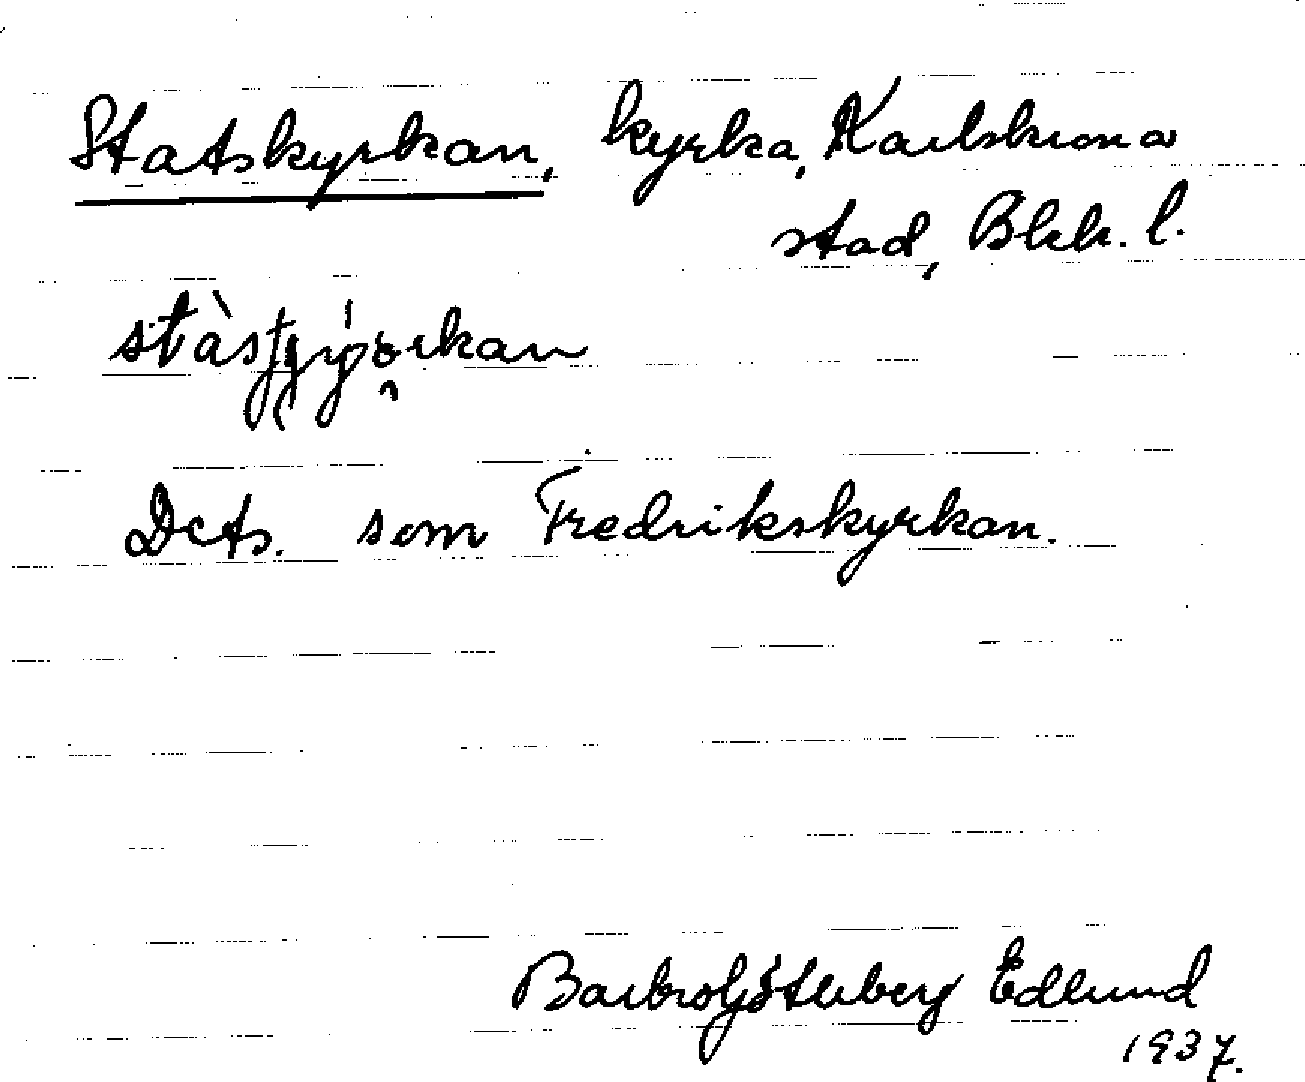 Statskyrkan, kyrka, Karlskrona
stad, Blek. l.
Dets. som Fredrikskyrkan.
Barbro Söderberg Edlund
1937.